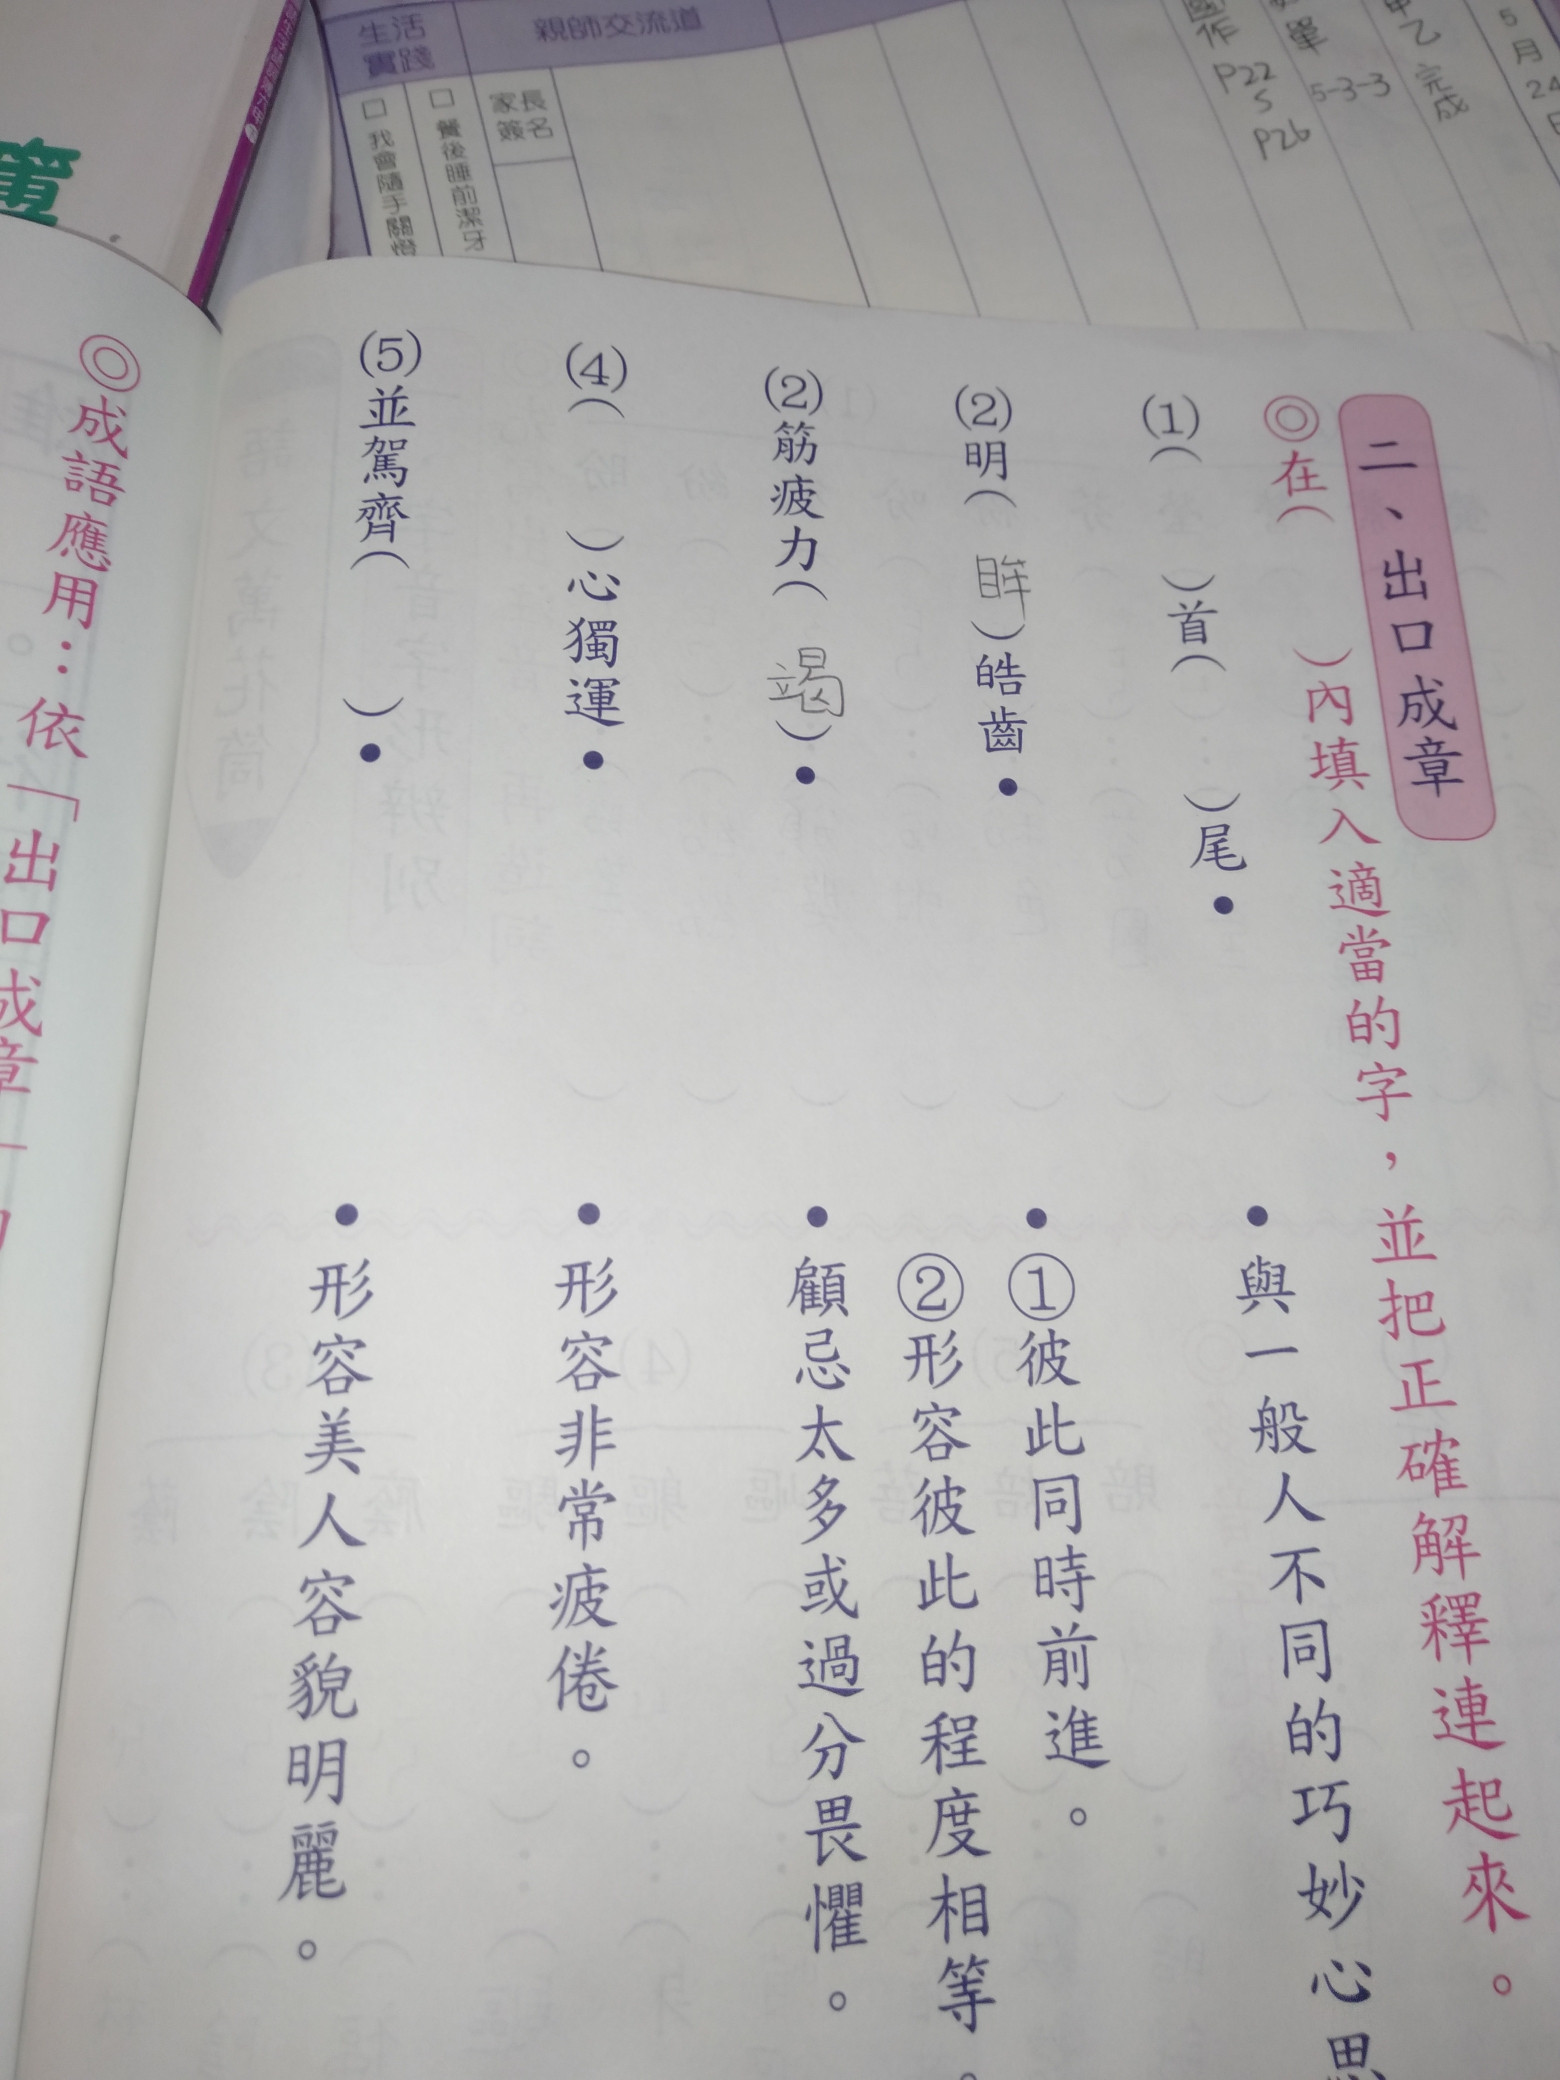 生活
實踐
親師交流道
□我會隨手關燈
□餐後睡前潔牙
家長
簽名
P22
P26
5-3-3
甲乙完成
5月24
二、出口成章
◎在（　）內填入適當的字，並把正確解釋連起來。
(1)（　）首（　）尾•
(2)明（眸）皓齒•
(2)筋疲力（竭）•
(4)（　）心獨運•
(5)並駕齊（　）•
•與一般人不同的巧妙心思
•①彼此同時前進。
②形容彼此的程度相等。
•顧忌太多或過分畏懼。
•形容非常疲倦。
•形容美人容貌明麗。
◎成語應用：依「出口成章